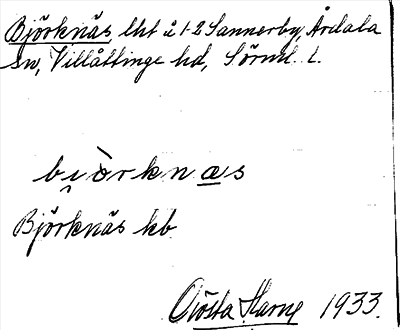 Björknäs lht å 1-2 Sannerby, Årdala
sn, Villåttinge hd, Sörml. l.
bi̯òrknæs
Björknäs kb
Gösta Harne 1933.